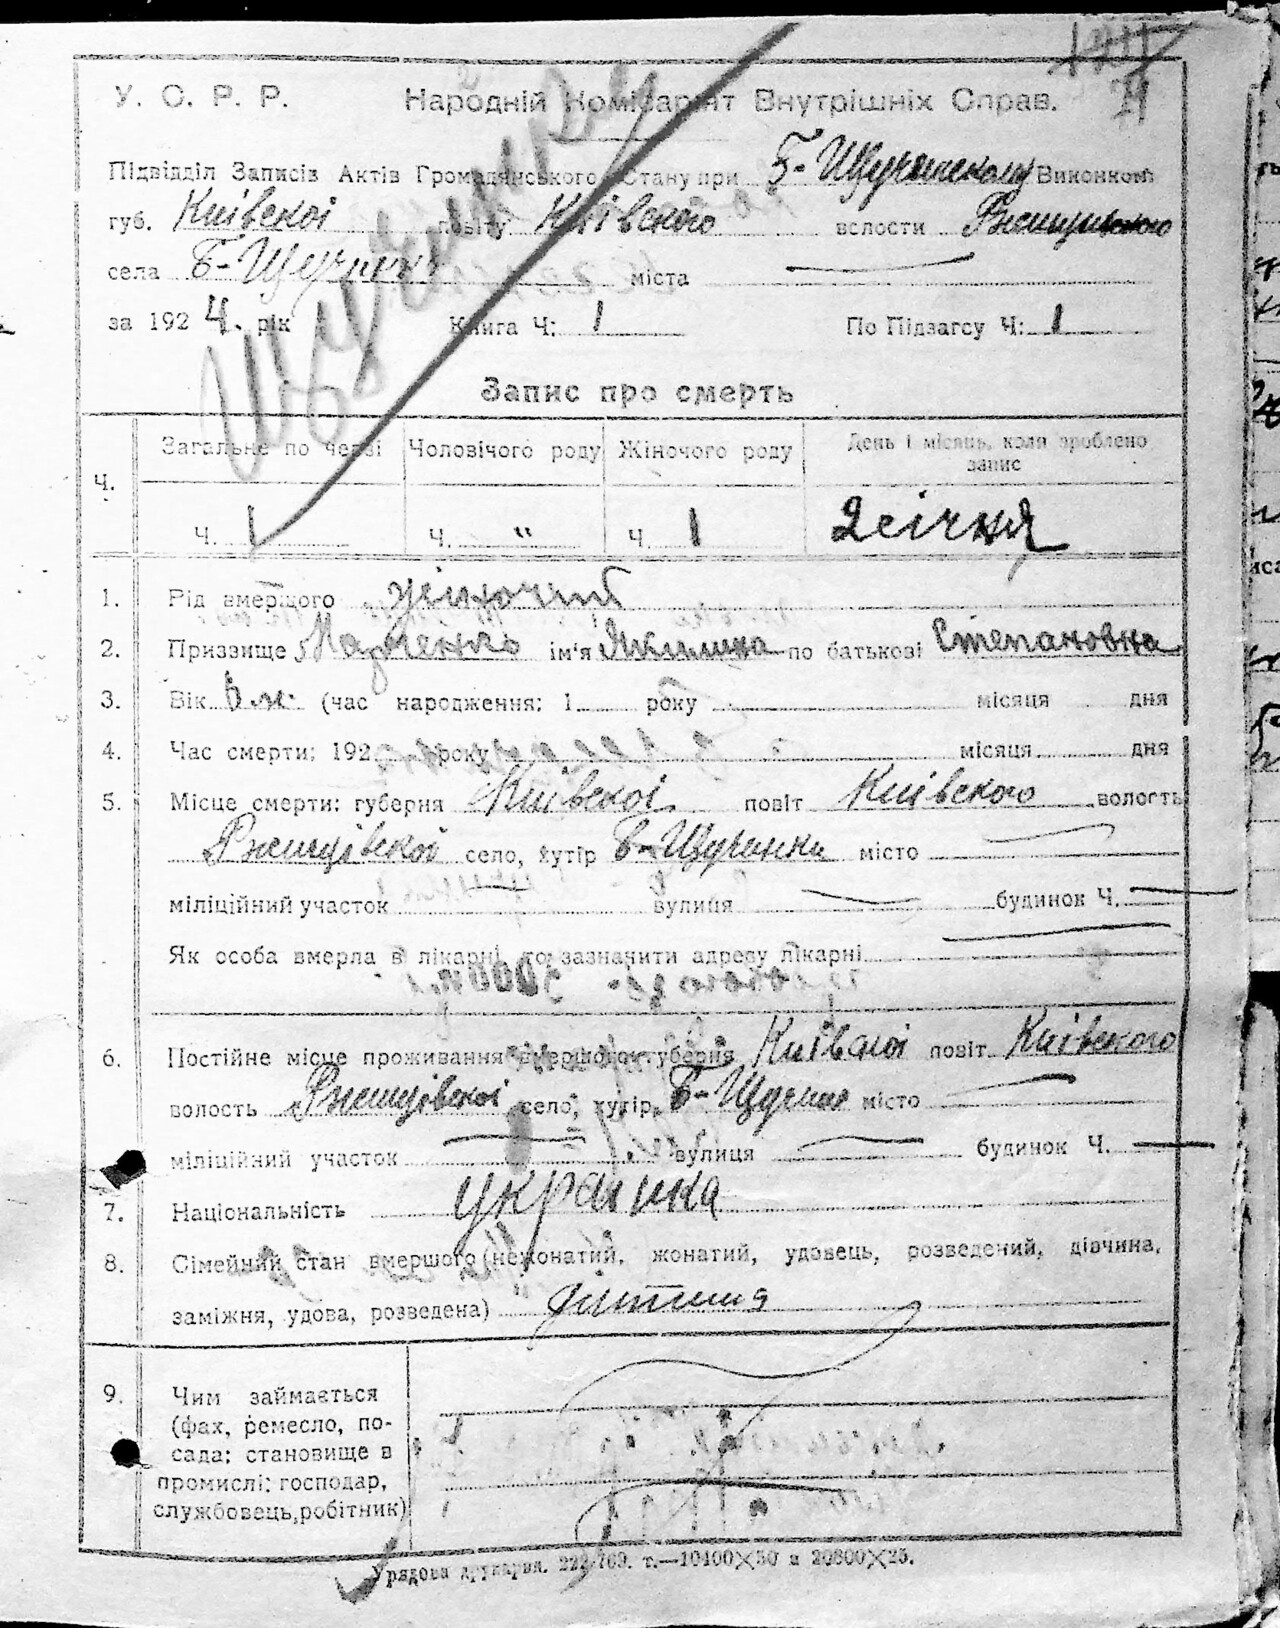 У. С. Р. Р. Народній Комісаріят Внутрішніх Справ.
24
Щучинка
Підвідділ Записів Актів Громадянського Стану при Б-Щучинском Виконком
губ. Київскоі повіту Київского волости Ржищівского
села Б-Щучинки міста
за 1924 рік Книга Ч: 1 По Підзагсу Ч: 1
Запис про смерть
Ч. Загальне по черзі Чоловічого роду Жіночого роду День і місяць, коли зроблено запис
Ч. 1 Ч. " Ч. 1 2 січня
1. Рід вмерщого жіночий
2. Призвище ім'я по батькові Степановна
3. Вік 6 м. (час народження: 1 року місяця дня
4. Час смерти: 192 року місяця дня
5. Місце смерти: губерня Київскоі повіт Київского волость
Ржищівскоі село, хутір Б-Щучинка місто
міліційний участок вулиця будинок Ч.
Як особа вмерла в лікарні, то зазначити адресу лікарні
6. Постійне місце проживання вмершого: губерня Київскоі повіт Київского
волость Ржищівскоі село, хутір Б-Щучинка місто
міліційний участок вулиця будинок Ч.
7. Національність украінка
8. Сімейний стан вмершого (нежонатий, жонатий, удовець, розведений, дівчина,
заміжня, удова, розведена) дітина
9. Чим займається
(фах, ремесло, по-
сада; становище в
промислі: господар,
службовець, робітник)
Урядова друкарня. 222-769. т.—10400×50 и 20800×25.